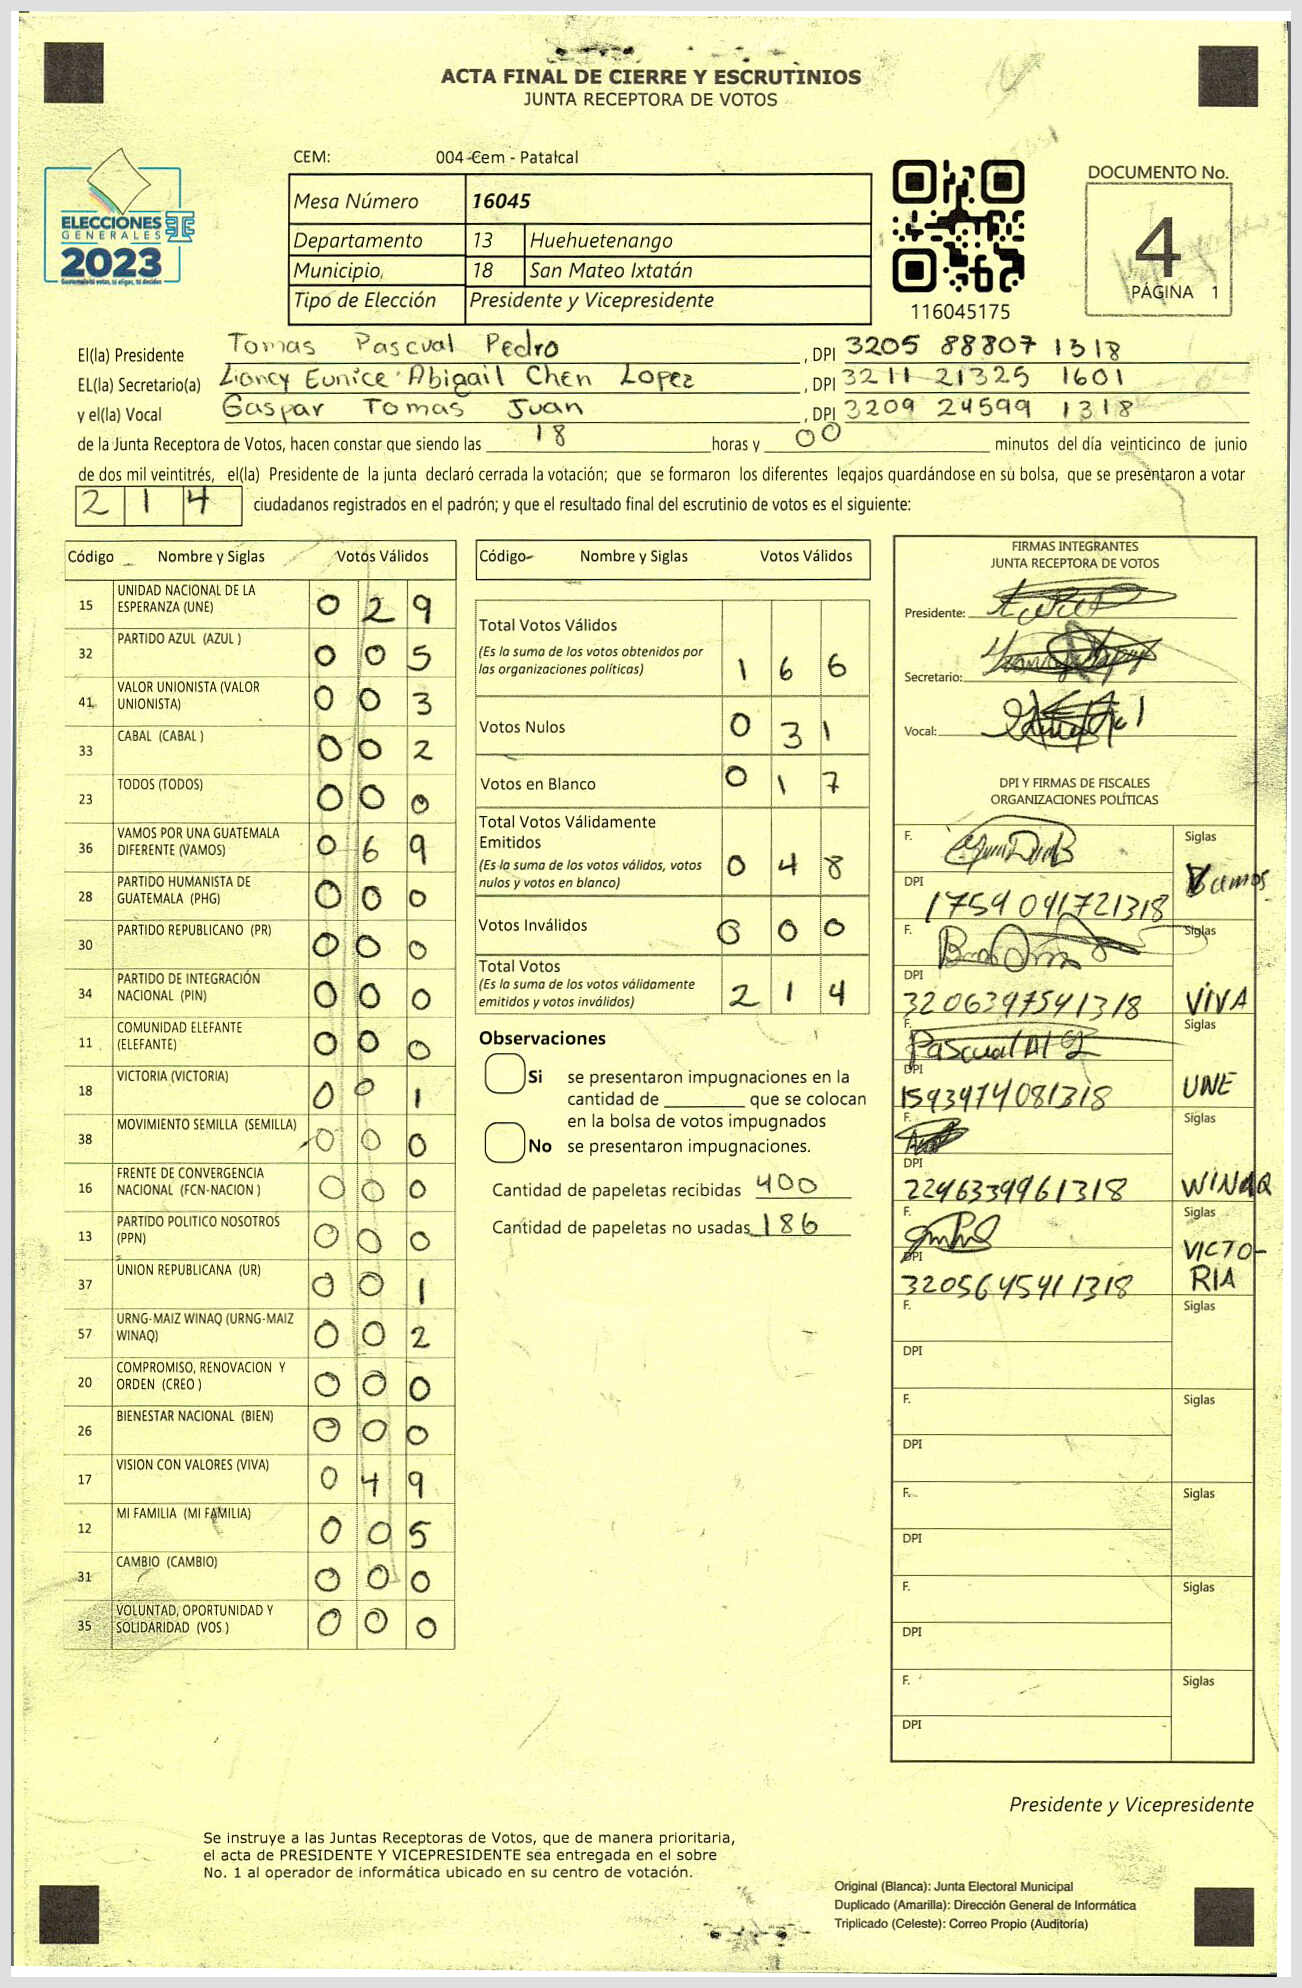 ACTA FINAL DE CIERRE Y ESCRUTINIOS
JUNTA RECEPTORA DE VOTOS
CEM: 004-Cem - Patalcal
ELECCIONES
GENERALES
2023
Mesa Número 16045
Departamento 13 Huehuetenango
Municipio, 18 San Mateo Ixtatán
Tipo de Elección Presidente y Vicepresidente
116045175
DOCUMENTO No.
4
PÁGINA 1
El(la) Presidente Tomas Pascual Pedro , DPI 3205 88807 1318
EL(la) Secretario(a) Eunice Abigail Chen Lopez , DPI 3211 21325 1601
y el(la) Vocal Gaspar Tomas Juan , DPI 3209 24599 1318
de la Junta Receptora de Votos, hacen constar que siendo las 18 horas y 00 minutos del día veinticinco de junio
de dos mil veintitrés, el(la) Presidente de la junta declaró cerrada la votación; que se formaron los diferentes legajos guardándose en su bolsa, que se presentaron a votar
214 ciudadanos registrados en el padrón; y que el resultado final del escrutinio de votos es el siguiente:
Código Nombre y Siglas Votos Válidos
15 UNIDAD NACIONAL DE LA ESPERANZA (UNE) 0 2 9
32 PARTIDO AZUL (AZUL ) 0 0 5
41 VALOR UNIONISTA (VALOR UNIONISTA) 0 0 3
33 CABAL (CABAL ) 0 0 2
23 TODOS (TODOS) 0 0 0
36 VAMOS POR UNA GUATEMALA DIFERENTE (VAMOS) 0 6 9
28 PARTIDO HUMANISTA DE GUATEMALA (PHG) 0 0 0
30 PARTIDO REPUBLICANO (PR) 0 0 0
34 PARTIDO DE INTEGRACIÓN NACIONAL (PIN) 0 0 0
11 COMUNIDAD ELEFANTE (ELEFANTE) 0 0 0
18 VICTORIA (VICTORIA) 0 0 1
38 MOVIMIENTO SEMILLA (SEMILLA) 0 0 0
16 FRENTE DE CONVERGENCIA NACIONAL (FCN-NACION ) 0 0 0
13 PARTIDO POLITICO NOSOTROS (PPN) 0 0 0
37 UNION REPUBLICANA (UR) 0 0 1
57 URNG-MAIZ WINAQ (URNG-MAIZ WINAQ) 0 0 2
20 COMPROMISO, RENOVACION Y ORDEN (CREO ) 0 0 0
26 BIENESTAR NACIONAL (BIEN) 0 0 0
17 VISION CON VALORES (VIVA) 0 4 9
12 MI FAMILIA (MI FAMILIA) 0 0 5
31 CAMBIO (CAMBIO) 0 0 0
35 VOLUNTAD, OPORTUNIDAD Y SOLIDARIDAD (VOS ) 0 0 0
Código Nombre y Siglas Votos Válidos
Total Votos Válidos
(Es la suma de los votos obtenidos por
las organizaciones políticas) 1 6 6
Votos Nulos 0 3 1
Votos en Blanco 0 1 7
Total Votos Válidamente
Emitidos
(Es la suma de los votos válidos, votos
nulos y votos en blanco) 0 4 8
Votos Inválidos 0 0 0
Total Votos
(Es la suma de los votos válidamente
emitidos y votos inválidos) 2 1 4
Observaciones
Si se presentaron impugnaciones en la
cantidad de ________ que se colocan
en la bolsa de votos impugnados
No se presentaron impugnaciones.
Cantidad de papeletas recibidas 400
Cantidad de papeletas no usadas 186
FIRMAS INTEGRANTES
JUNTA RECEPTORA DE VOTOS
Presidente:
Secretario:
Vocal:
DPI Y FIRMAS DE FISCALES
ORGANIZACIONES POLÍTICAS
F. Siglas
Vamos
DPI
1759 041721318
F. Siglas
DPI
3206397541318 VIVA
F. Pascual Siglas
DPI
1593974081318 UNE
F. Siglas
DPI
2296339961318 WINAQ
F. Siglas
VICTO-
DPI
3205645411318 RIA
F. Siglas
DPI
F. Siglas
DPI
F. Siglas
DPI
F. Siglas
DPI
F. Siglas
DPI
Presidente y Vicepresidente
Se instruye a las Juntas Receptoras de Votos, que de manera prioritaria,
el acta de PRESIDENTE Y VICEPRESIDENTE sea entregada en el sobre
No. 1 al operador de informática ubicado en su centro de votación.
Original (Blanca): Junta Electoral Municipal
Duplicado (Amarilla): Dirección General de Informática
Triplicado (Celeste): Correo Propio (Auditoría)